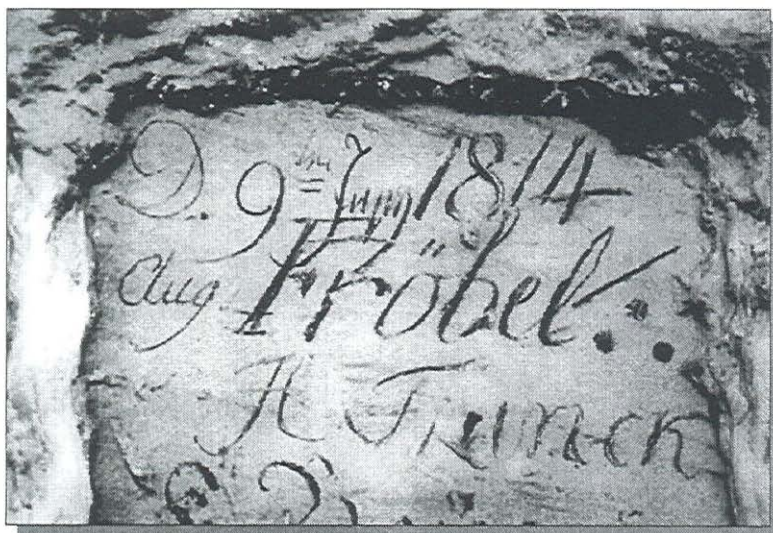 D. 9ten Juny 1814
Aug Fröbel.
H Trunck